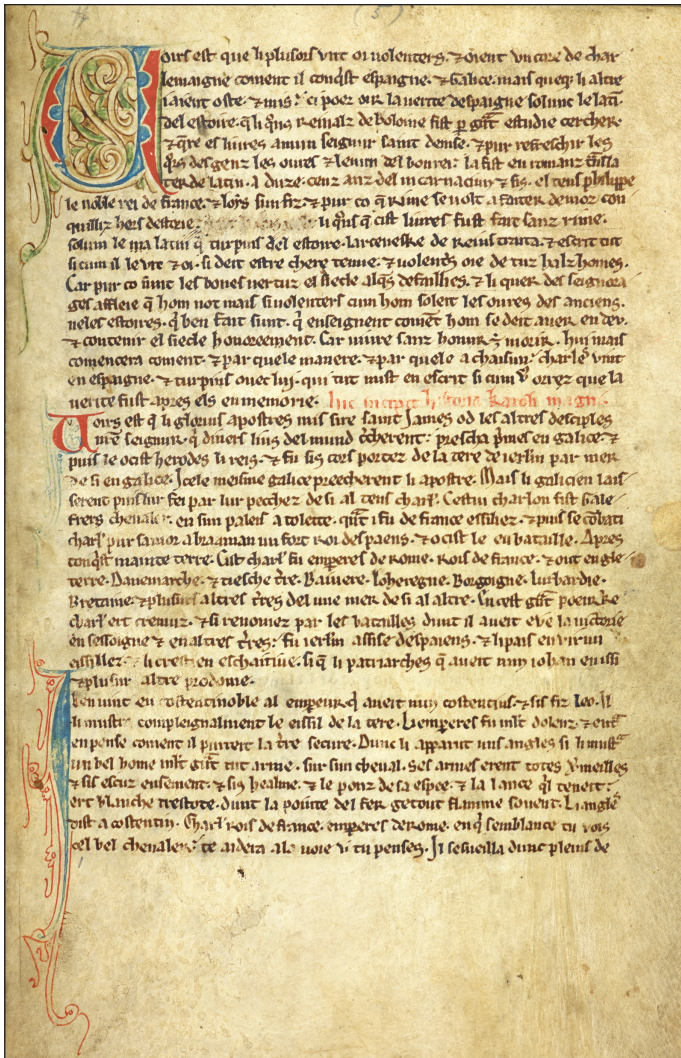 (5)
Voirs est que li plusors unt oi volenters. ⁊ oient uncore de char
lemaigne coment il conqst espaigne. ⁊ Galice. mais queq; li altre
i aient oste. ⁊ mis. ci poez oir la verite despaigne solunc le lati.
del estoire. q li qns reinalz de boloine fist p gnt estudie cercher.
⁊ qre es livres a mun seignur saint denise. ⁊ pur refreschir les
qs des genz les ovres ⁊ le nun del bon rei. la fist en romanz tnsla
ter de latin. a duze. cenz anz del incarnaciun ⁊ sis. el tens phelippe
le noble rei de france. ⁊ lois sun fiz. ⁊ pur co q rime se volt afaiter de moz con
quilliz hors destorie. li qns q cist livres fust fait sanz rime.
solum le latin q turpins del estoire. larceveske de reins traita. ⁊ escrit tut
si cum il le vit ⁊ oi. si deit estre chere tenue. ⁊ volenters oie de tuz halz homes.
Car pur co sunt les bones vertuz el siecle alqs defaillies. ⁊ li quer des seignora
ges affleie q hom not mais si volenters cum hom soleit les ovres des anciens.
ne les estoires. q ben fait sunt. q enseignent coment hom se deit aver en deu.
⁊ contenir el siecle honoreement. Car vivre sanz honur morir. hui mais
comencera coment. ⁊ par quele manere. ⁊ par quele achaisun. charles vint
en espaigne. ⁊ turpins ovec lui. qui tut mist en escrit si cum v orrez que la
verite fust apres els en memorie. hic incipit historia Karoli magni.
Voirs est q li glorius apostres mis sire saint James od les altres desciples
seignur. q divers lius del mund cherent. prescha pmes en galice. ⁊
puis le ocist herodes li reis. ⁊ fu sis cors portez de la tere de ierlm par mer
de si en galice. Icele meisme galice preecherent li apostre. Mais li galicien lais
serent puis lur fei par lur pecchez de si al tens charl. Cestui charlon fist Gale
frers chevaler. en sun paleis a tolette. qnt i fu de france essiliez. ⁊ puis se cobati
charl pur samor a braaman un fort roi des paens. ⁊ ocist le en bataille. Apres
conqst mainte terre. Cist charl fu emperes de Rome. Rois de france. ⁊ out engle
terre. Danemarche. ⁊ tiesche tre. Baiuere. loheregne. Borgoigne. lurbardie.
Bretaine. ⁊ plusurs altres tres del une mer de si al altre. En cest gnt poeir ke
charl ert cremuz. ⁊ si renomez par les batailles dunt il aveit eve la victorie
en sessoigne ⁊ en altres tres. fu ierlm assise des paiens. ⁊ li pais envirun
eissillez. ⁊ li crestien eschaitive. si q li patriarches q aveit nun iohan en issi
⁊ plusur altre prodome.
Il en vint en costentinoble al empeur q aveit nun costentins. ⁊ sis fiz leo. Il
li mustra compleignalment le eissil de la tere. Lemperes fu mlt dolenz. ⁊ entra
en pense coment il purreit la tre secure. Dunc li apparut uns angles si li mustra
un bel home mlt gnt tut arme. sur sun cheval. Ses armes erent totes vmeilles
⁊ sis escuz ensement. ⁊ sis healme. ⁊ le ponz de sa espee. ⁊ la lance ql teneit.
ert blanche trestote. dunt la pointe del fer getout flamme sovent. Li angle
dist a costentin. Charl rois de france. emperes de rome. en q semblance tu vois
cel bel chevaler. te aidera a la voie v tu penses. Il sesveilla dunc pleins de